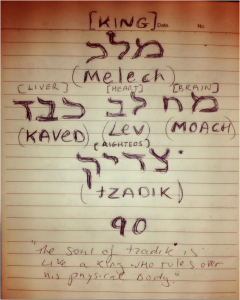 [KING] Date No
מלכ
(Melech)
[LIVER] [HEART] [BRAIN]
מח לב כבד
(KAVED) (Lev) (MOACH)
[RIGHTEOS]
צדיק
(tZADIK)
90
"The soul of tzadik is
like a king who rules over
his physical body"